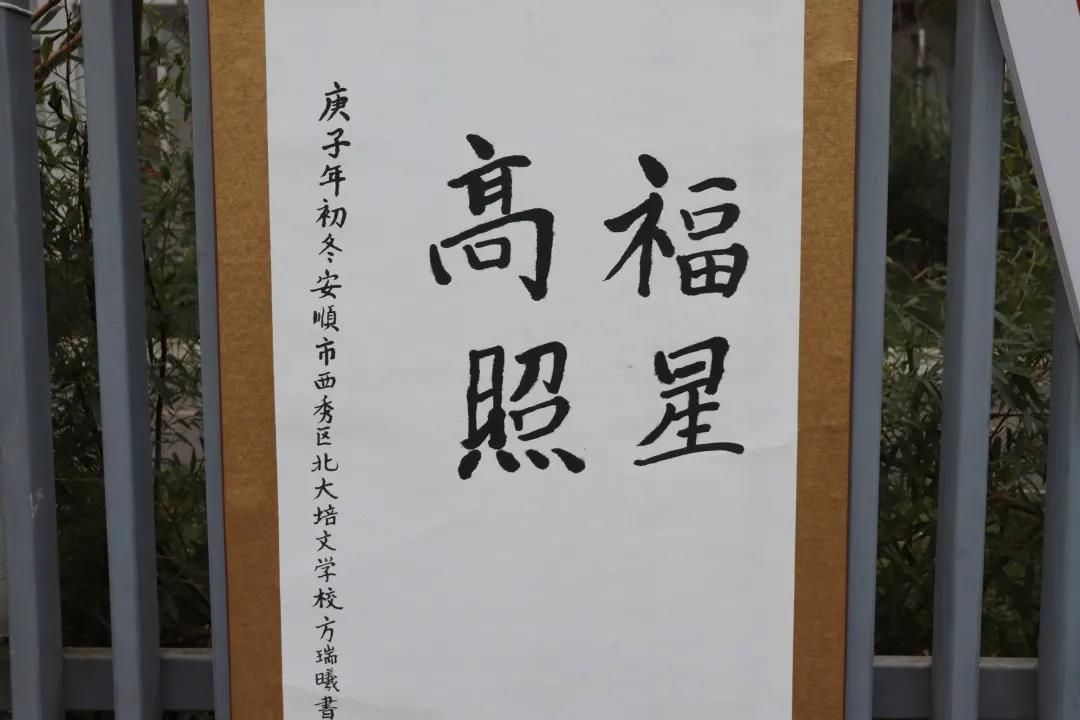 福星
髙照
庚子年初冬安順市西秀区北大培文学校方瑞曦書